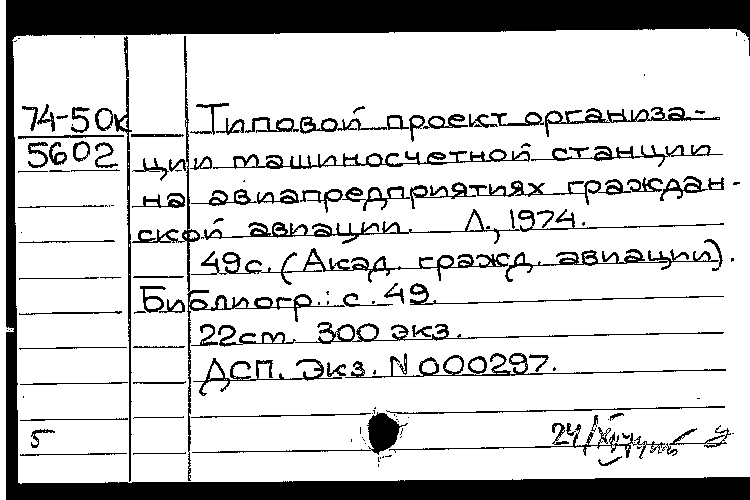 74-50к Типовой проект организа-
5602 ции машиносчетной станции
на авиапредприятиях граждан-
ской авиации. Л., 1974.
49с. (Акад. гражд. авиации).
Библиогр.: с. 49.
22см. 300 экз.
ДСП. Экз. N 000297.
5 24/